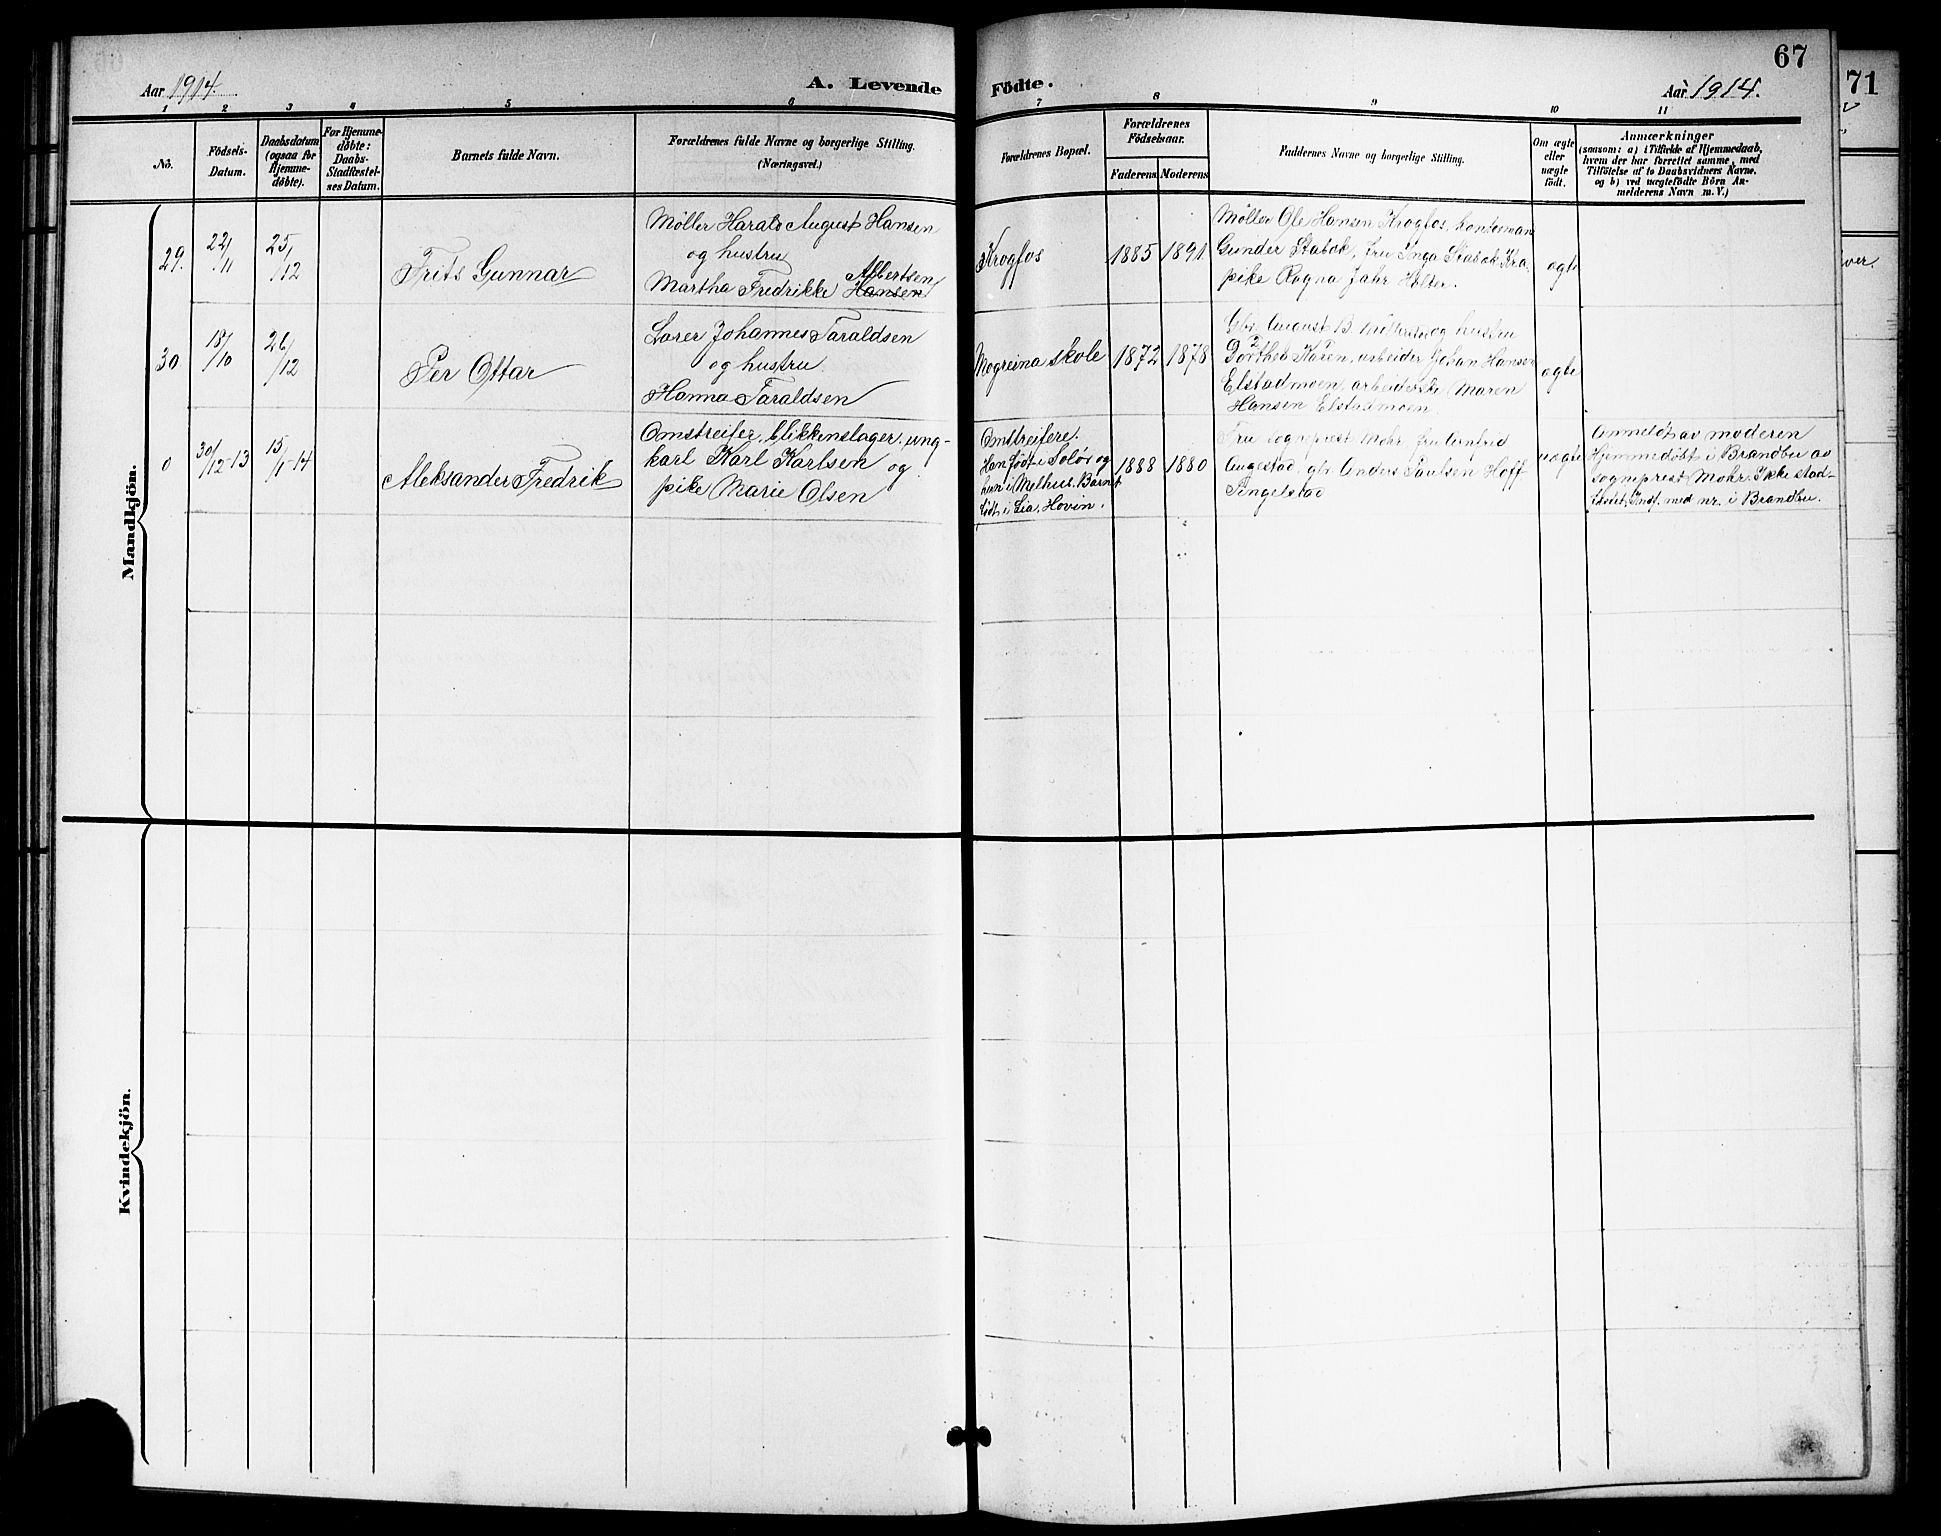 67
71
Aar 1914.
A. Levende
Födte.
Aar 1914.
1 2 3 4 5 6 7 8 9 10 11
No.
Födsels-
Datum.
Daabsdatum
(ogsaa for
Hjemme-
döbte).
For Hjemme-
döbte:
Daabs-
Stadfæstel-
ses Datum.
Barnets fulde Navn.
Forældrenes fulde Navne og borgerlige Stilling.
(Næringsvei.)
Forældrenes Bopæl.
Forældrenes
Födselsaar.
Faderens
Moderens
Faddernes Navne og borgerlige Stilling.
Om ægte
eller
uægte
födt.
Anmærkninger
(saasom: a) i Tilfælde af Hjemmedaab,
hvem der har forrettet samme, med
Tilföielse af to Daabsvidners Navne.
og b) ved uægtefödte Börn An-
melderens Navn m. V.)
Mandkjön.
29.
22/11
25/12
Frits Gunnar
Møller Harald August Hansen
og hustru
Albertsen
Martha Fredrikke Hansen
Krogfos
1885
1891
Møller Ole Hansen Krogfos,
Gunder Stabæk, fru Inga Stabæk,
pike Ragna Jahr Holter.
ægte
30
18/10
26/12
Per Ottar
Lærer Johannes Taraldsen
og hustru
Hanna Taraldsen
Mogreina skole
1872
1878
Gbr. August B. og hustru
Dorthea Karen, arbeider Johan Hansen
Elstadmoen, arbeiderske Maren
Hansen Elstadmoen.
ægte
0
30/12-13
15/1-14
Aleksander Fredrik
Omstreifer, blikkenslager, ung-
karl Karl Karlsen og
pike Marie Olsen
Omstreifere.
Han født i Solør og
hun i Melhus. Barnet
født i Lia, Hovin.
1888
1880
Fru sogneprest Mohr, fru
Augestad, gbr. Anders Paulsen Hoff
Tingelstad
uægte
Anmeldt av moderen
Hjemmedøbt i Brandbu av
sogneprest Mohr. Ikke stad-
fæstet. Indf. med nr. i Brandbu.
Kvindekjön.
ver.